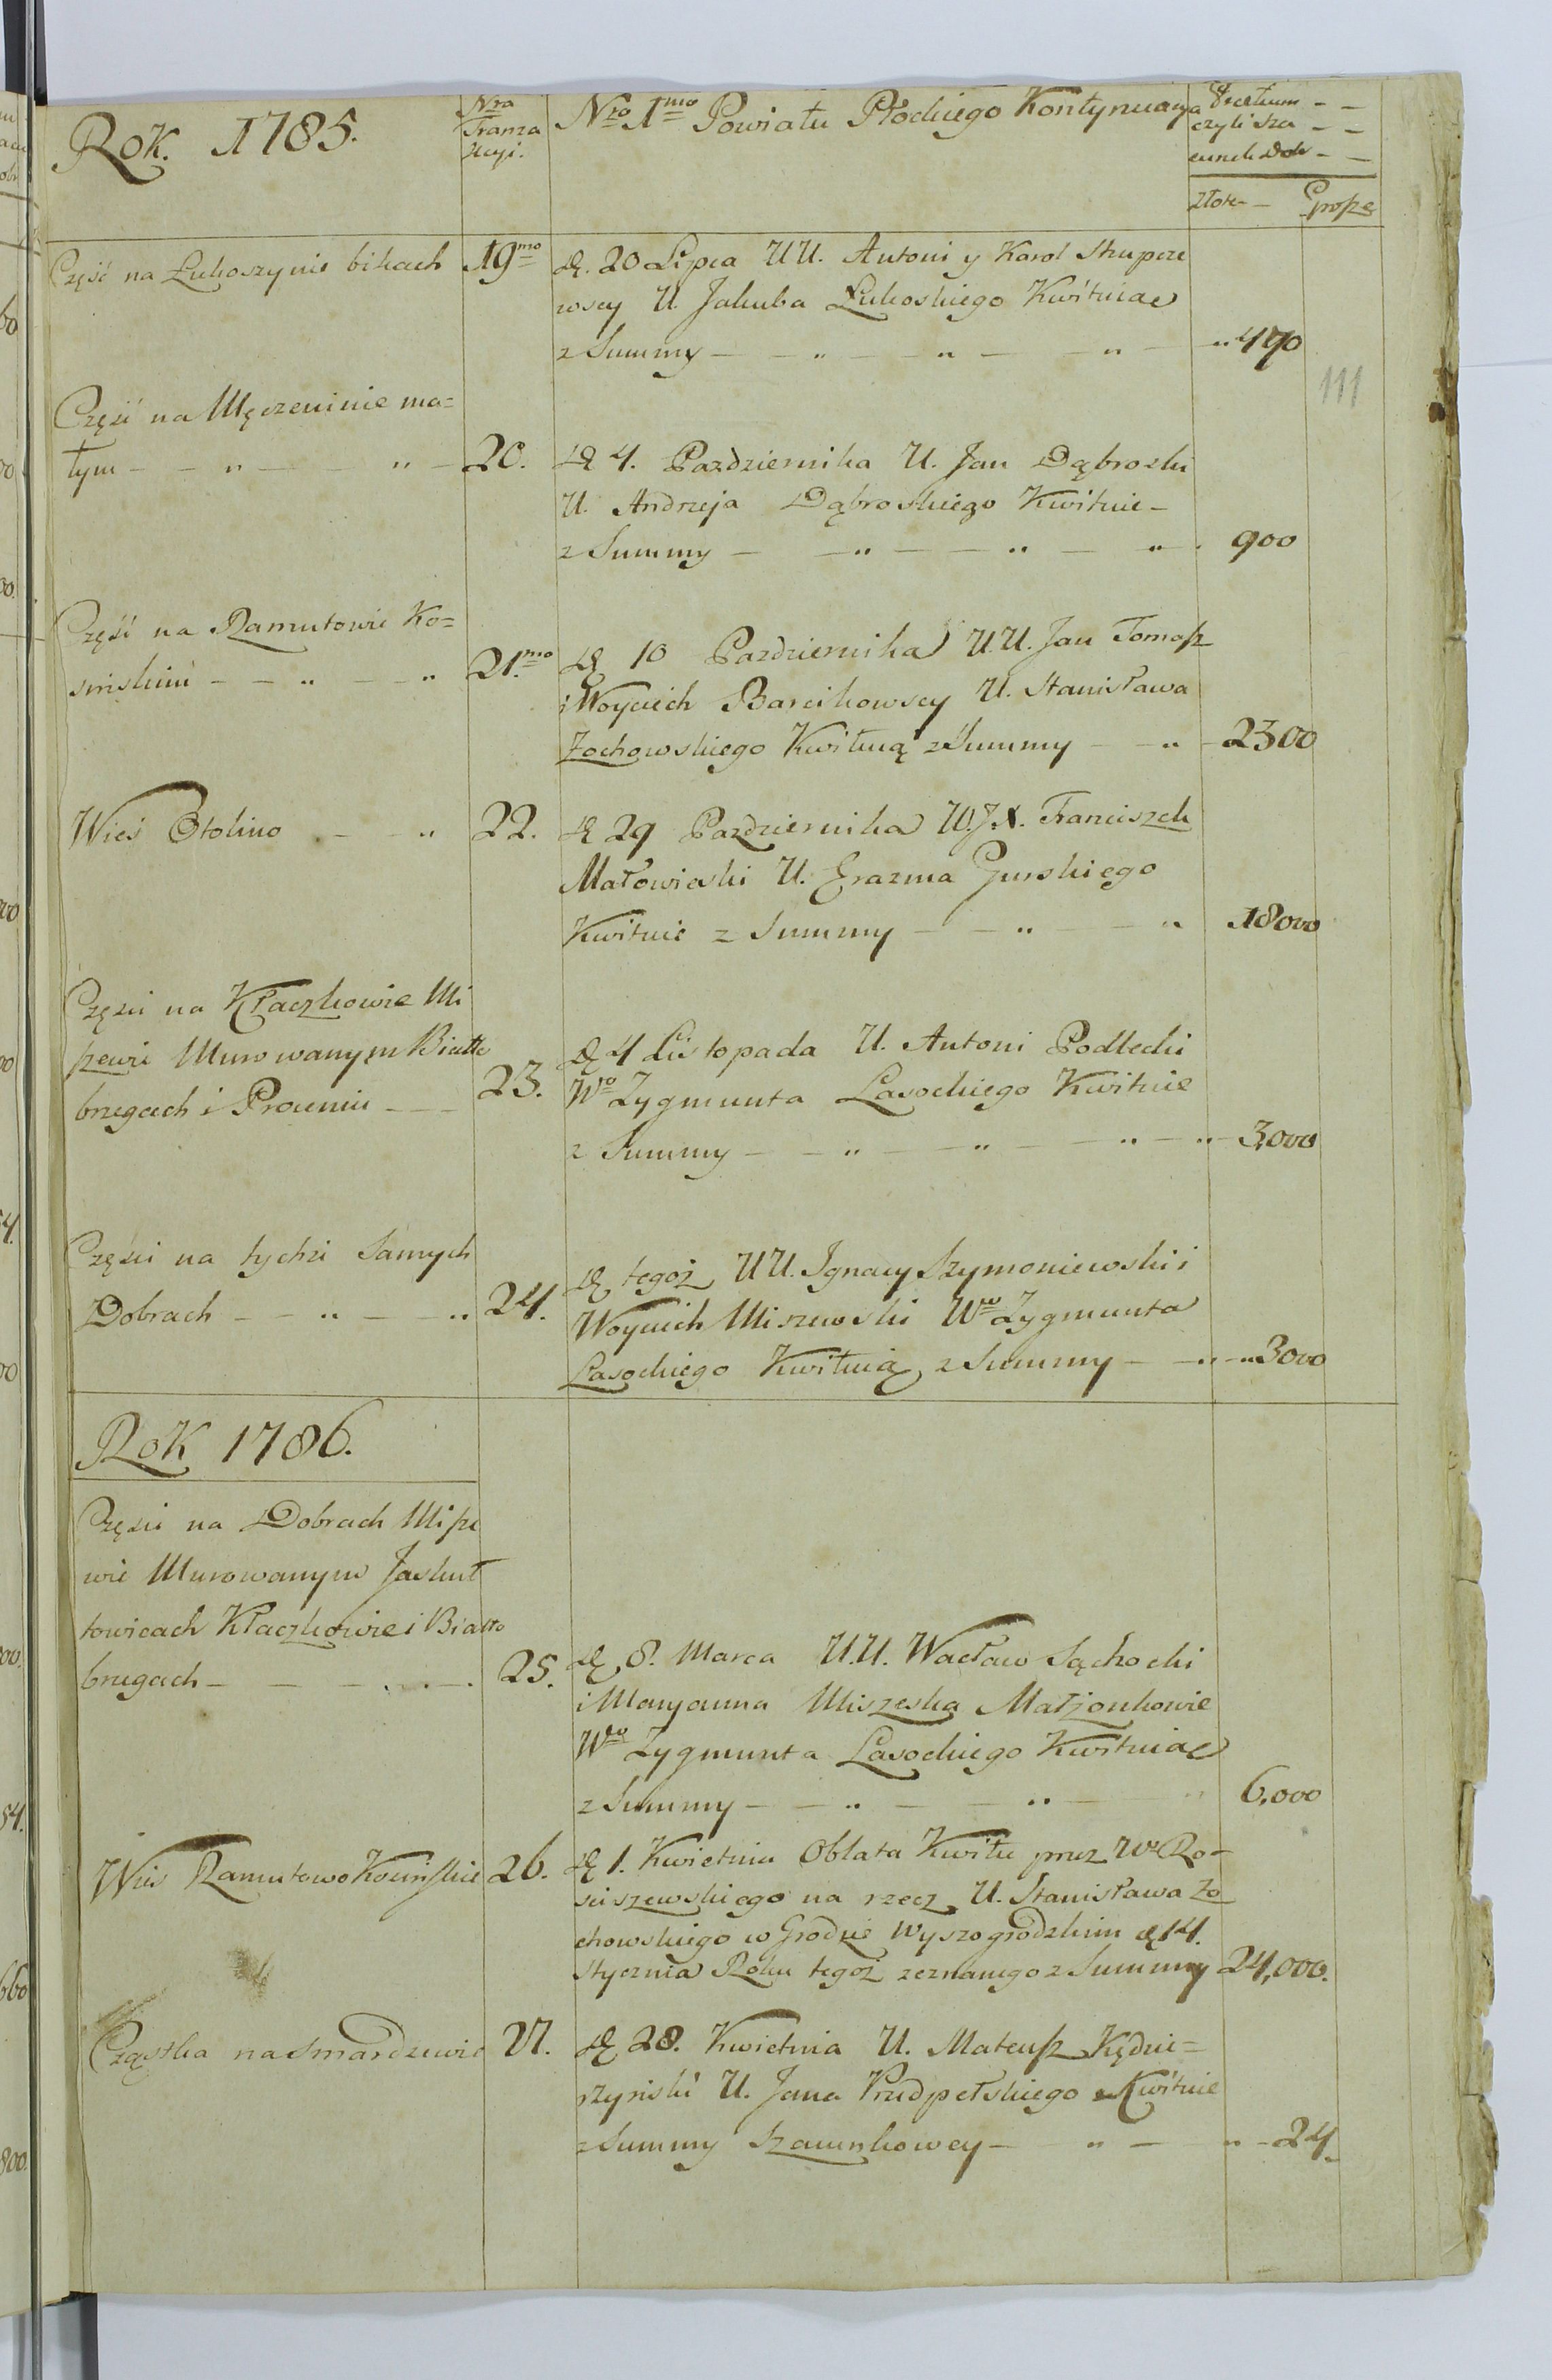 Rok. 1785.
Nra Tranza kcyi.
Nro 1mo Powiatu Płockiego Kontynuacya
czyli Sza
cunek Dob
złote Grosze
Część na Łukoszynie bikach 19mo
D. 20 Lipca UU. Antoni y Karol Skupcze
wscy U. Jakuba Łukoskiego Kwitniae
z Summy 470
111
Część na Męczeninie ma=
łym 20.
D 4. Pazdziernika U. Jan Dąbroski
U. Andrzeja Dąbroskiego Kwitnie
z Summy 900
Część na Ramutowie Ko=
sinskim 21.mo
D 10 Pazdziernika UU. Jan Tomasz
i Woyciech Barcikowscy U. Stanisława
Żochowskiego Kwitną z Summy 2300
Wieś Otolino 22.
D 29 Pazdziernika W.J.X. Franciszek
Małowieski U. Erazma Gurskiego
Kwitnie z Summy 18000
Części na Kłaczkowie Mi
szewie Murowanym Biało
brzegach i Proeniu 23.
D 4 Listopada U. Antoni Podlecki
Wo Zygmunta Lasockiego Kwitnie
z Summy 3,000
Części na tychże Samych
Dobrach 24.
D tegoż UU. Ignacy Szymoniewski i
Woyciech Miszewski Wo Zygmunta
Lasockiego Kwitnią z Summy 3000
Rok 1786.
Części na Dobrach Misze
wie Murowanym Jaskuł
towicach Kłaczkowie i Biało
brzegach 25.
D 8. Marca U.U. Wacław Sąchocki
i Maryanna Miszeska Małżonkowie
Wo Zygmunta Lasockiego Kwitniae
z Summy 6,000
Wies Ramutowo Kosinskie 26.
D 1. Kwietnia Oblata Kwitu przez Wo Ro-
sciszewskiego na rzecz U. Stanisława Żo
chowskiego w Grodzie Wyszogrodzkim d 14.
Stycznia Roku tegoż zeznanego z Summy 24,000.
Cząstka na Smardzewie 27.
D 28. Kwietnia U. Mateusz Kędzie=
rzynski U. Jana Prudpełskiego Kwitnie
z Summy Szacunkowey 24